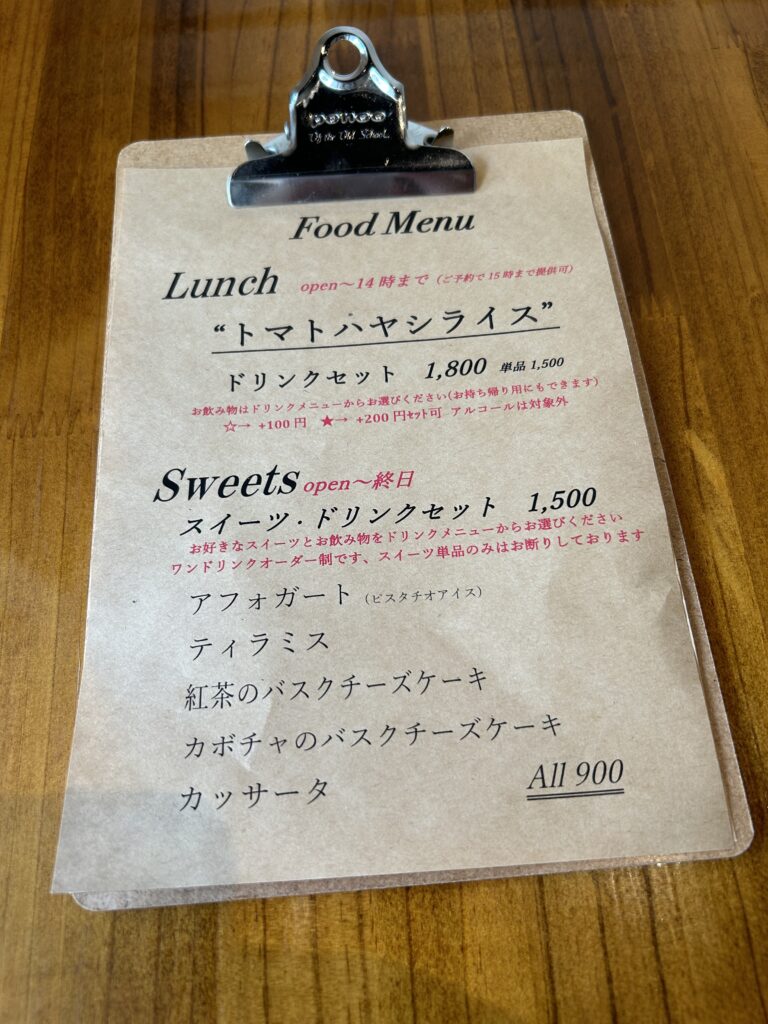 ponoo
Of the Old School.
Food Menu
Lunch open～14時まで（ご予約で15時まで提供可）
“トマトハヤシライス”
ドリンクセット 1,800 単品 1,500
お飲み物はドリンクメニューからお選びください(お持ち帰り用にもできます)
☆→ +100円 ★→ +200円ｾｯﾄ可 アルコールは対象外
Sweets open～終日
スイーツ・ドリンクセット 1,500
お好きなスイーツとお飲み物をドリンクメニューからお選びください
ワンドリンクオーダー制です、スイーツ単品のみはお断りしております
アフォガート（ピスタチオアイス）
ティラミス
紅茶のバスクチーズケーキ
カボチャのバスクチーズケーキ
カッサータ
All 900